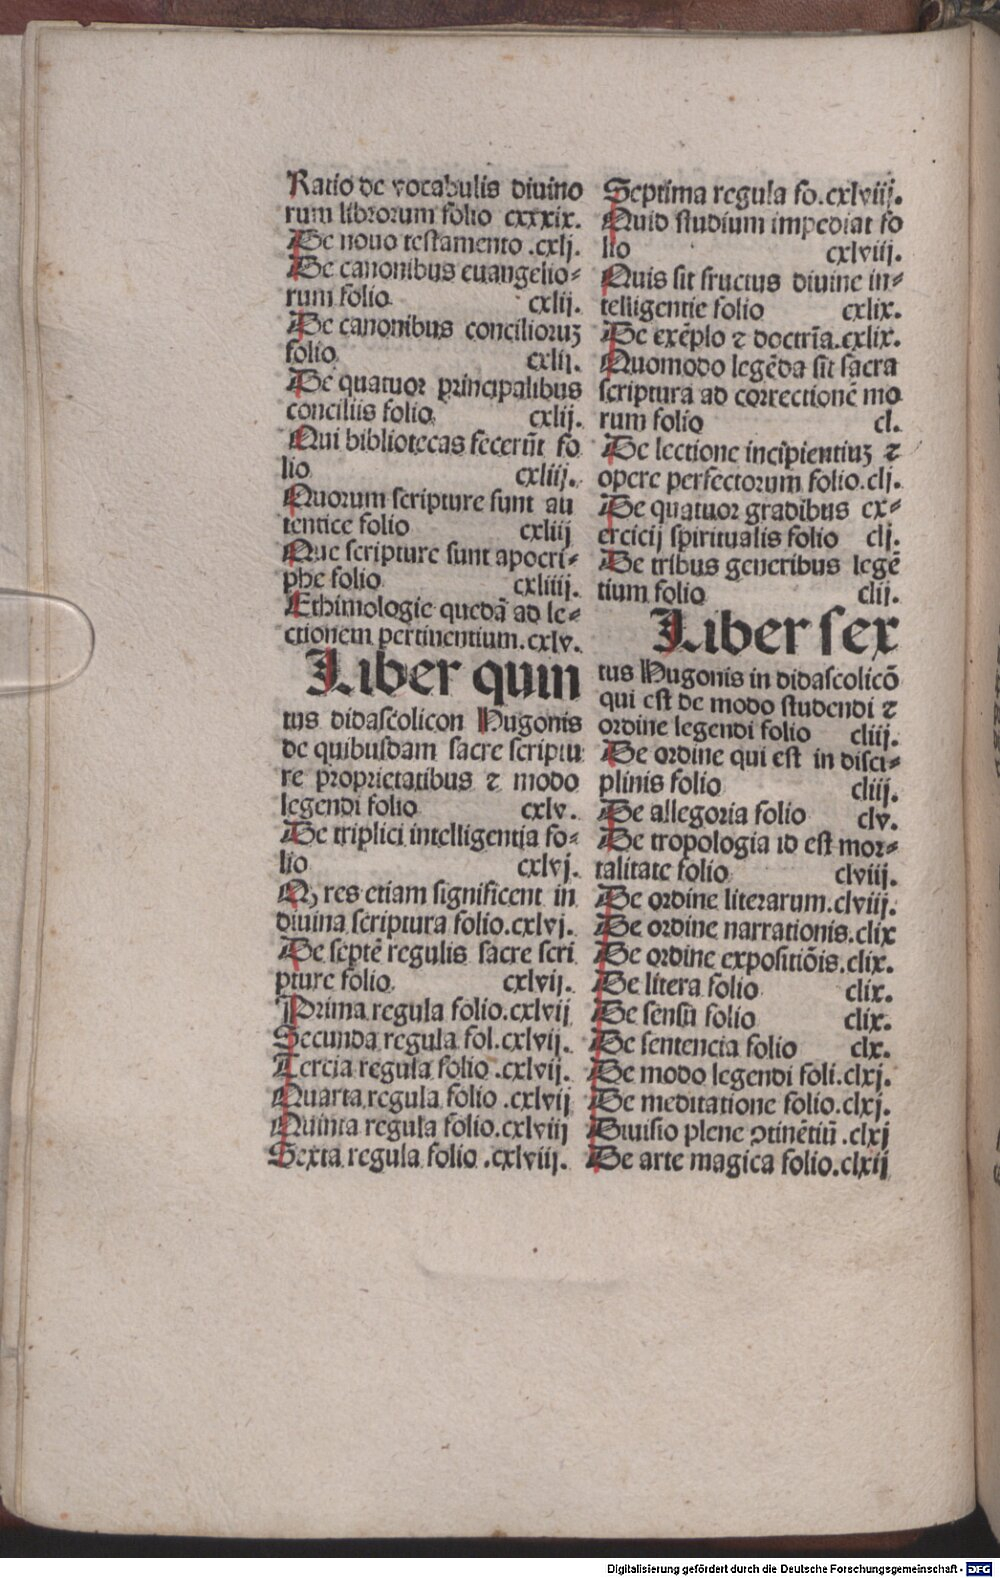 Ratio de vocabulis diuino
rum librorum folio cxxxix.
De nouo testamento .cxlj.
De canonibus euangelio⸗
rum folio cxlij.
De canonibus concilioruꝫ
folio cxlij.
De quatuor principalibus
conciliis folio cxlij.
Qui bibliotecas fecerūt fo
lio cxliij.
Quorum scripture sunt au
tentice folio cxliij
Que scripture sunt apocri⸗
phe folio cxliiij.
Ethimologie quedā ad le⸗
ctionem pertinentium.cxlv.
Liber quin
tus didascolicon Hugonis
de quibusdam sacre scriptu
re proprietatibus ⁊ modo
legendi folio cxlv.
De triplici intelligentia fo⸗
lio cxlvj.
Qꝫ res etiam significent in
diuina scriptura folio.cxlvj.
De septē regulis sacre scri
pture folio cxlvij.
Prima regula folio.cxlvij
Secunda regula fol.cxlvij.
Tercia regula folio .cxlvij.
Quarta regula folio .cxlvij
Quinta regula folio.cxlviij
Sexta regula folio .cxlviij.
Septima regula fo.cxlviij.
Quid studium impediat fo
lio cxlviij.
Quis sit fructus diuine in⸗
telligentie folio cxlix.
De exēplo ⁊ doctrīa.cxlix.
Quomodo legēda sit sacra
scriptura ad correctionē mo
rum folio cl.
De lectione incipientiuꝫ ⁊
opere perfectorum folio.clj.
De quatuor gradibus ex⸗
ercicij spiritualis folio clj.
De tribus generibus legē
tium folio clij.
Liber sex
tus Hugonis in didascolicō
qui est de modo studendi ⁊
ordine legendi folio cliij.
De ordine qui est in disci⸗
plinis folio cliij.
De allegoria folio clv.
De tropologia id est mor⸗
talitate folio clviij.
De ordine literarum.clviij.
De ordine narrationis.clix
De ordine expositiōis.clix.
De litera folio clix.
De sensū folio clix.
De sentencia folio clx.
De modo legendi foli.clxj.
De meditatione folio.clxj.
Diuisio plene ↄtinētiū .clxj
De arte magica folio.clxij
Digitalisierung gefördert durch die Deutsche Forschungsgemeinschaft - DFG